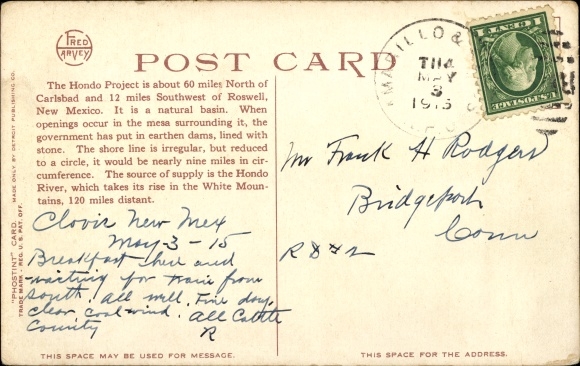 FRED
HARVEY
POST CARD
AMARILLO &
THA
MAY
3
1915
U.S. POSTAGE
1 CENT 1
The Hondo Project is about 60 miles North of
Carlsbad and 12 miles Southwest of Roswell,
New Mexico. It is a natural basin. When
openings occur in the mesa surrounding it, the
government has put in earthen dams, lined with
stone. The shore line is irregular, but reduced
to a circle, it would be nearly nine miles in cir-
cumference. The source of supply is the Hondo
River, which takes its rise in the White Moun-
tains, 120 miles distant.
"PHOSTINT" CARD. MADE ONLY BY DETROIT PUBLISHING CO.
TRADE MARK - REG. U.S. PAT. OFF.
Clovis New Mex
May-3-15
Breakfast here and
waiting for train from
South. All well. Fine day,
clear, cool wind. All Cattle
County
R
Mr Frank H Rodgers
Bridgeport
Conn
R D # 2
THIS SPACE MAY BE USED FOR MESSAGE.
THIS SPACE FOR THE ADDRESS.